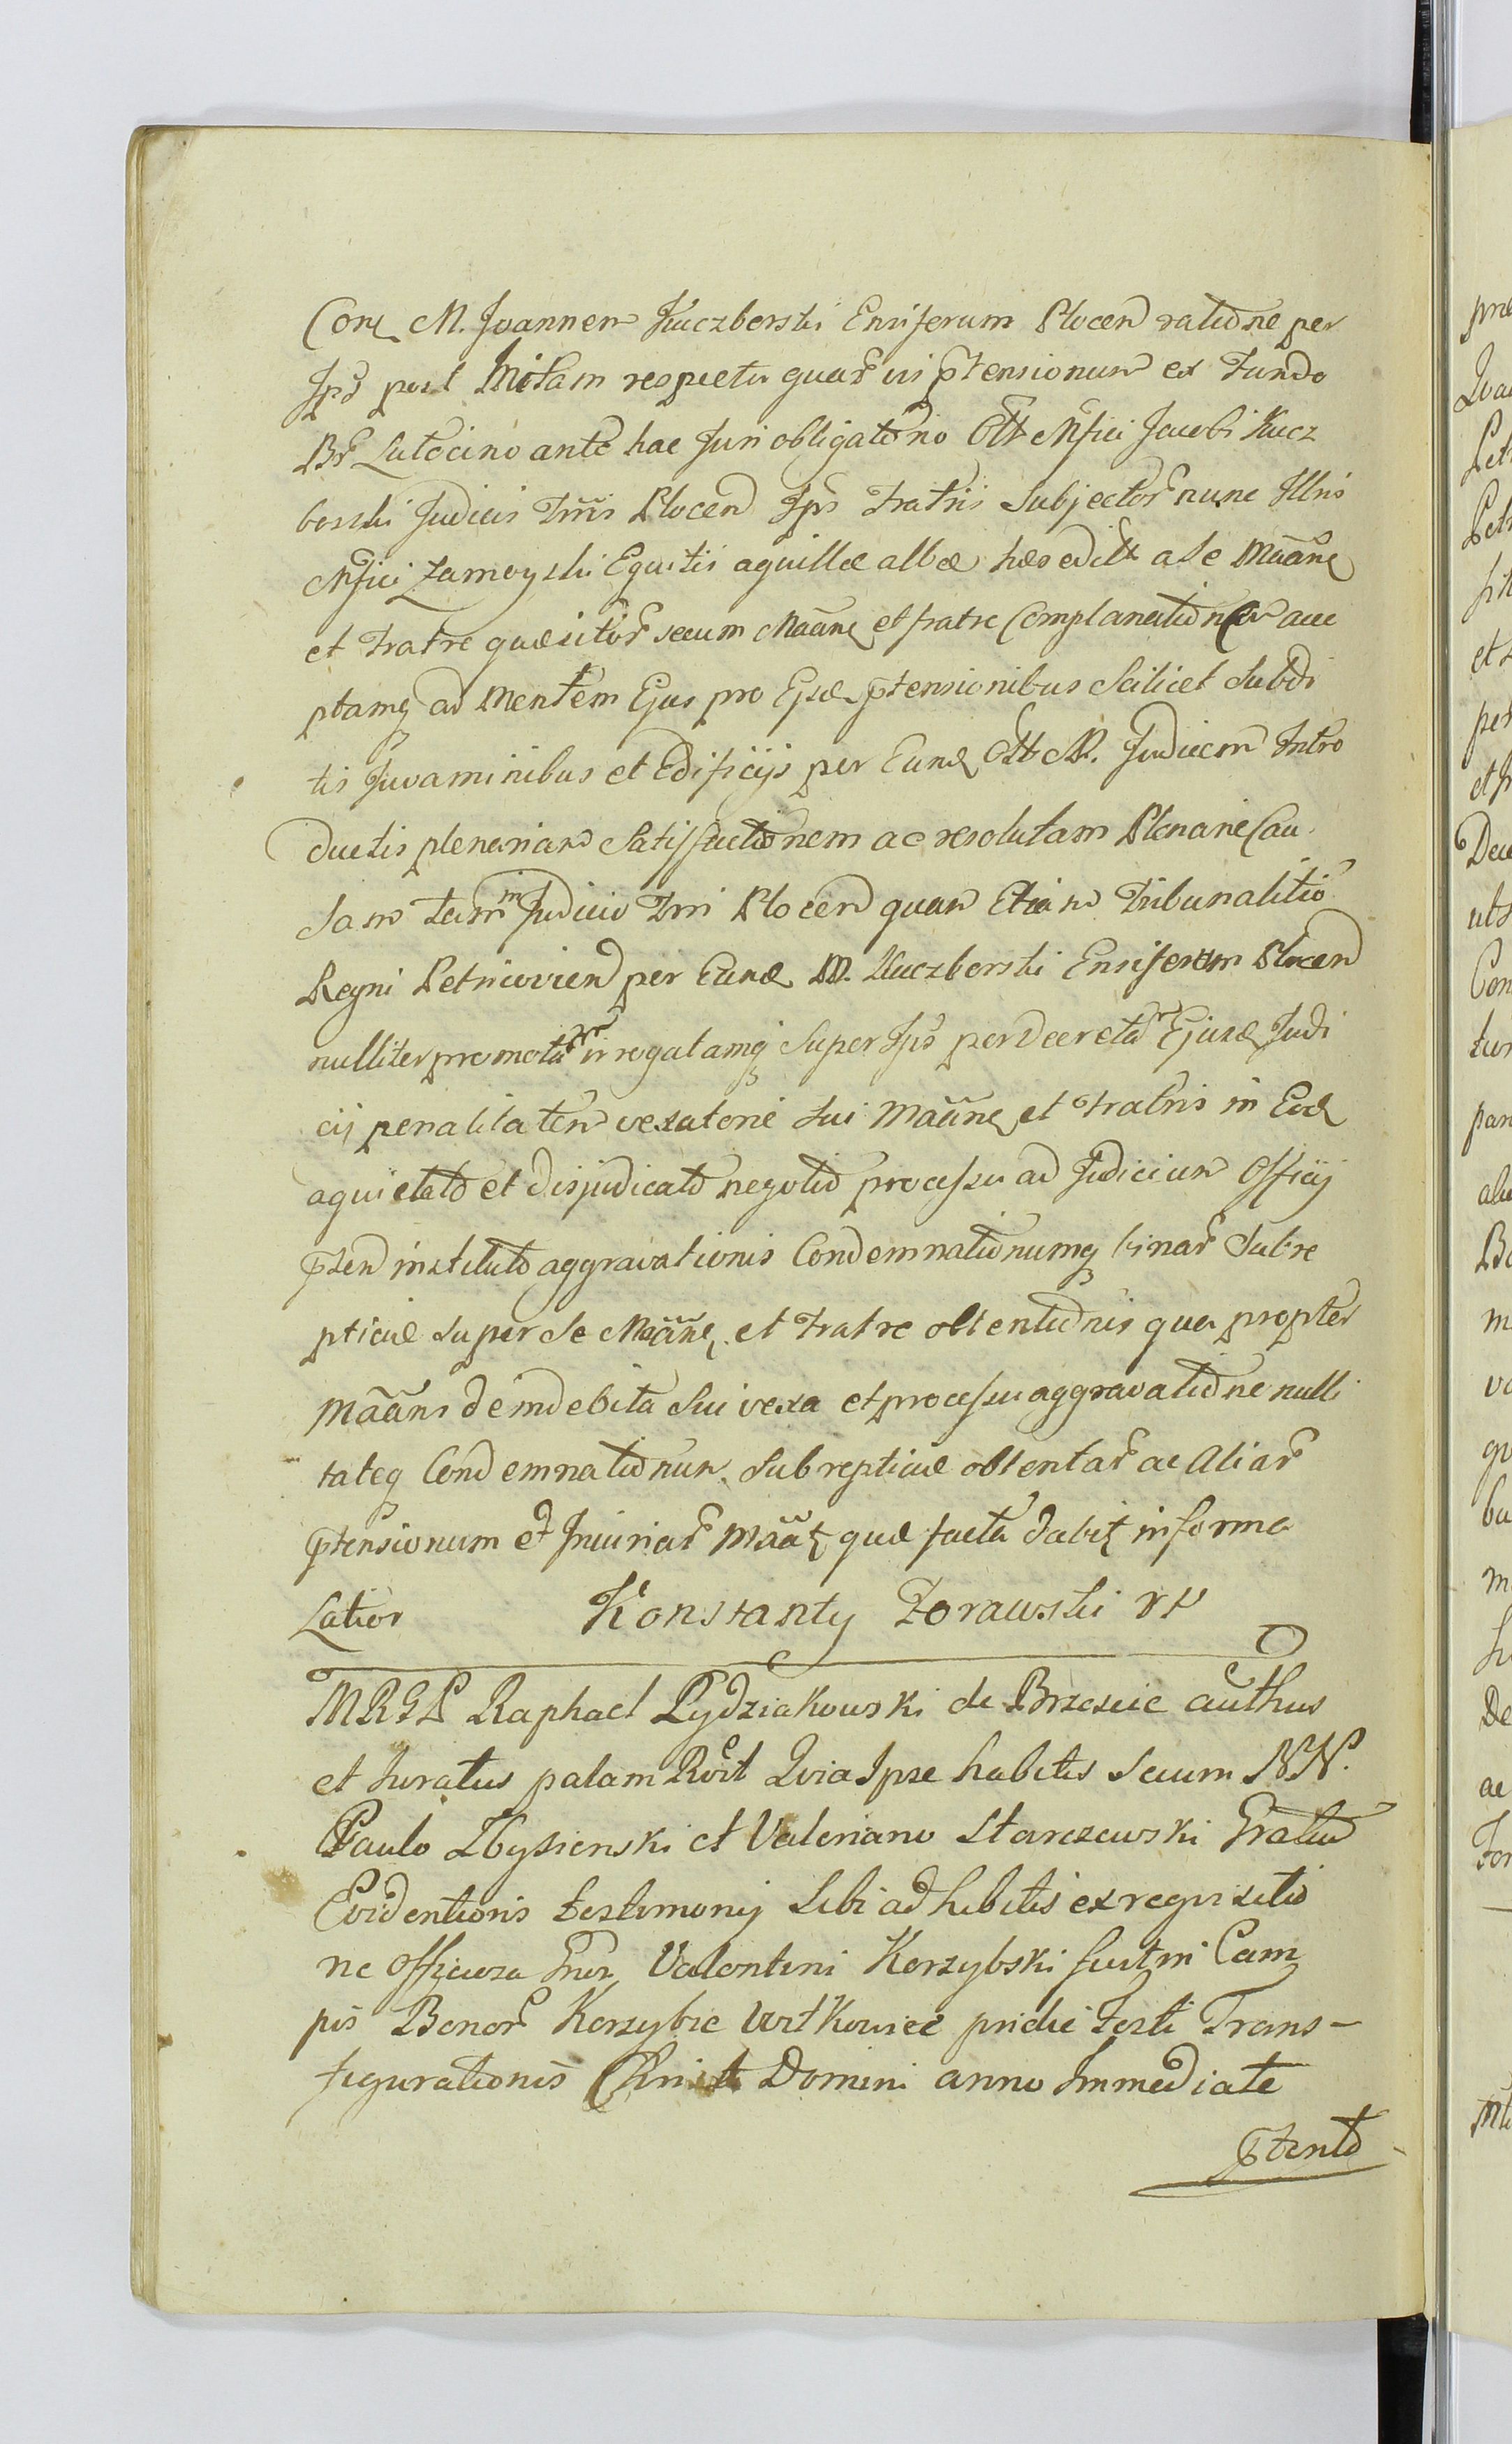 Con M. Joannem Kuczborski Ensiferum Plocen ratione per
Ips post Initam respectu quar vis ptensionum ex Fundo
Br Lutocino ante hac Juri obligatorio Olt Mfici Jacobi Kucz
borski Judicis Trris Plocen Ips Fratris Subjector nunc Illris
Mfici Zamoyski Equitis aquillae albae haered a Se Maane
et Fratre quaesitor secum Maane et fratre Complanationem acce
ptamq ad mentem Ejus pro Ejsd ptensionibus Scilicet Subdi
tis Juvaminibus et Edificijs per Eund Olt M. Judicem Intro
ductis plenariam Satisfactionem ac resolutam Plenarie Cau
sam tam in Judicio Trri Plocen quam Etiam Tribunalitio
Regni Petricovien per Eund M. Kuczborski Ensiferum Plocen
nulliter promotam irrogatamq Super Ips per Decretum Ejusd Judi
cij penalitatem vexatorie Sui Maane et Fratris in Eod
aquietato et disjudicato negotio processu ad Judicium Officij
pten instituto aggravationis Condemnationumq binar Subre
pticie super Se Maane et Fratre obtentionis qua propter
Maans de indebita Sui vexa et processu aggravatione nulli
tateq Condemnationum Subrepticie obtentar ac Aliar
ptensionum et Iniuriar Maat quae facta dabit in forma
Latior Konstanty Zorawski
MRGP Raphael Rydziakowski de Brzescie authus
et Juratus palam Rcit Quia Ipse habitis Secum NN.
Paulo Zbysienski et Valeriano Starczewski Gratia
Evidentioris testimonij Sibi adhibitis ex requisitio
ne officiosa Gnr Valentini Korzybski fuit in Cam
pis Bonor Korzybie Witkowice pridie Festi Trans-
figurationis Christi Domini anno Immediate
ptento